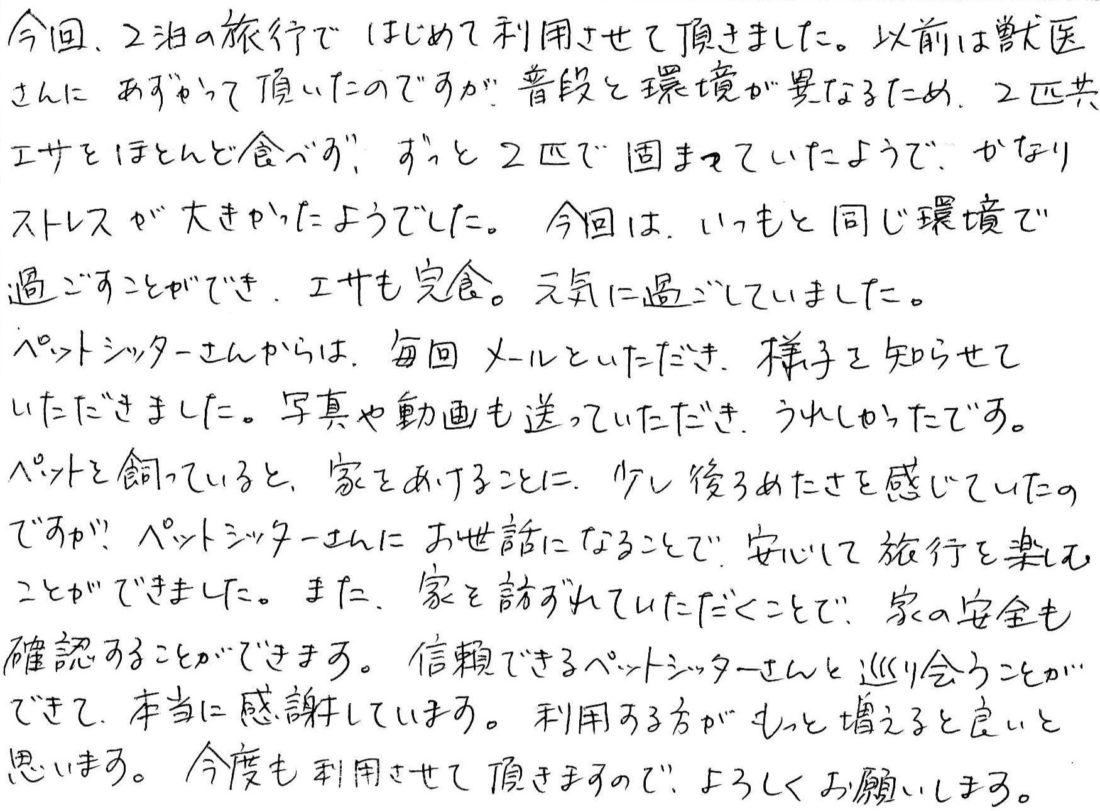 今回、2泊の旅行で はじめて利用させて頂きました。以前は獣医
さんに あずかって頂いたのですが、普段と環境が異なるため、2匹共
エサをほとんど食べず、ずっと2匹で固まっていたようで、かなり
ストレスが大きかったようでした。今回は、いつもと同じ環境で
過ごすことができ、エサも完食。元気に過ごしていました。
ペットシッターさんからは、毎回メールをいただき、様子を知らせて
いただきました。写真や動画も送っていただき、うれしかったです。
ペットを飼っていると、家をあけることに、少し後ろめたさを感じていたの
ですが、ペットシッターさんにお世話になることで、安心して旅行を楽しむ
ことができました。また、家を訪ずれていただくことで、家の安全も
確認することができます。信頼できるペットシッターさんと巡り会うことが
できて、本当に感謝しています。利用する方がもっと増えると良いと
思います。今度も利用させて頂きますので、よろしくお願いします。